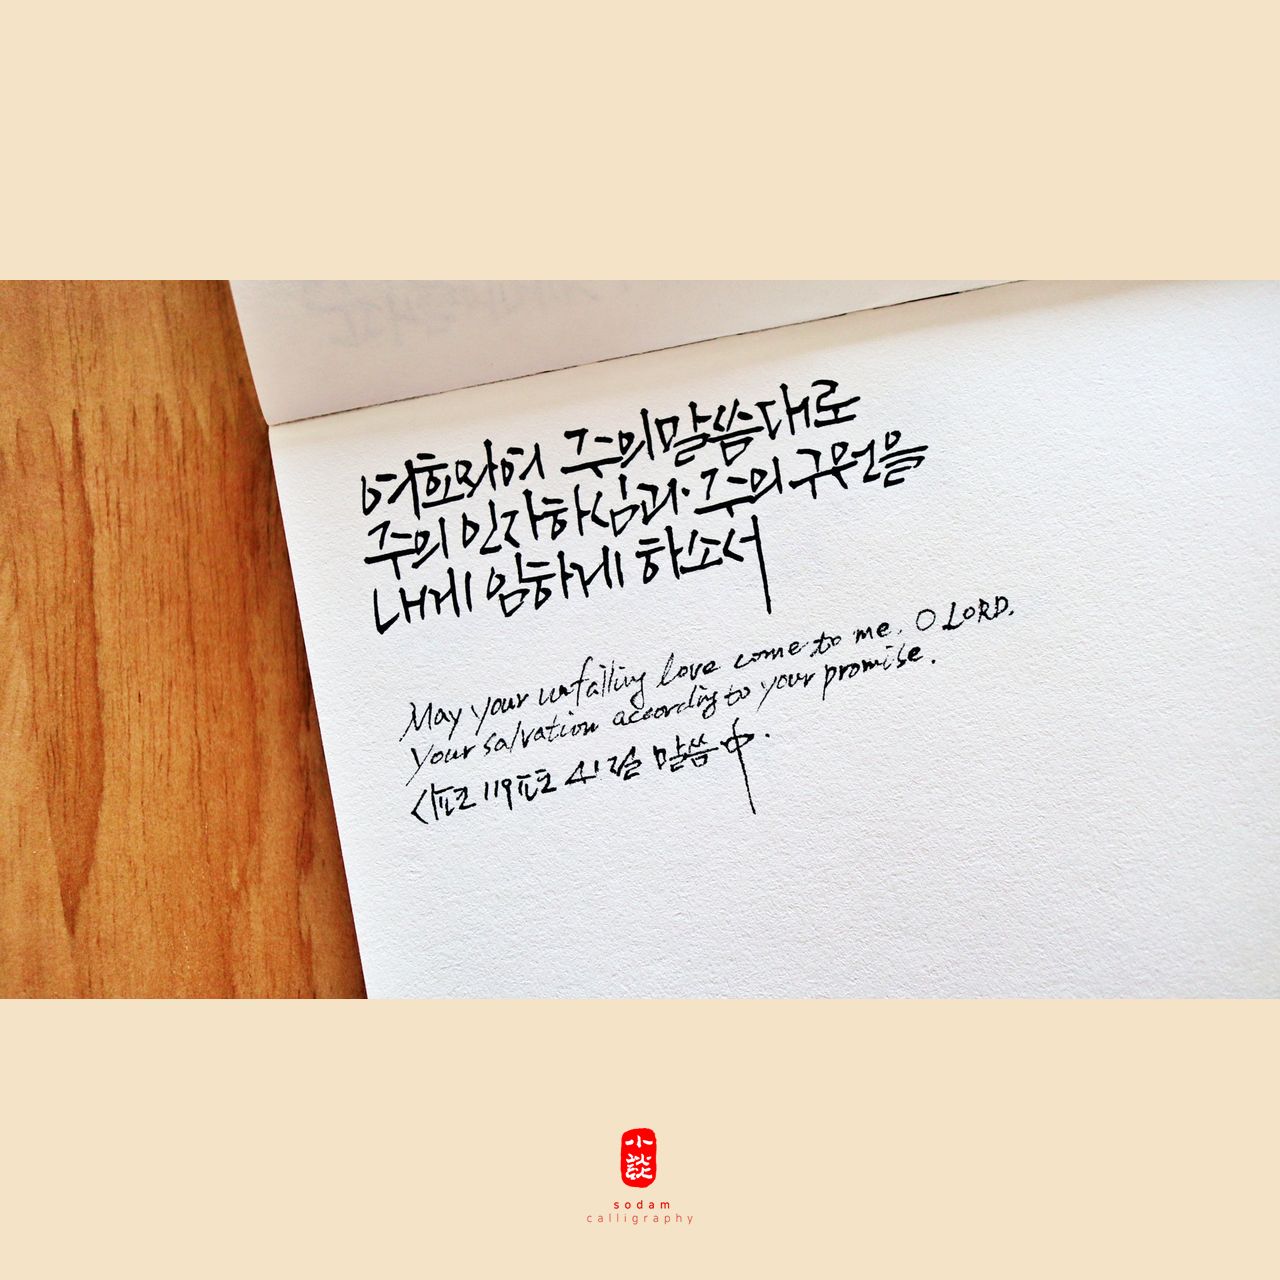 여호와여 주의 말씀대로
주의 인자하심과 주의 구원을
내게 임하게 하소서
May your unfailing love come to me. O LORD.
Your salvation according to your promise.
시편 119편 41절 말씀 中.
小談
sodam
calligraphy